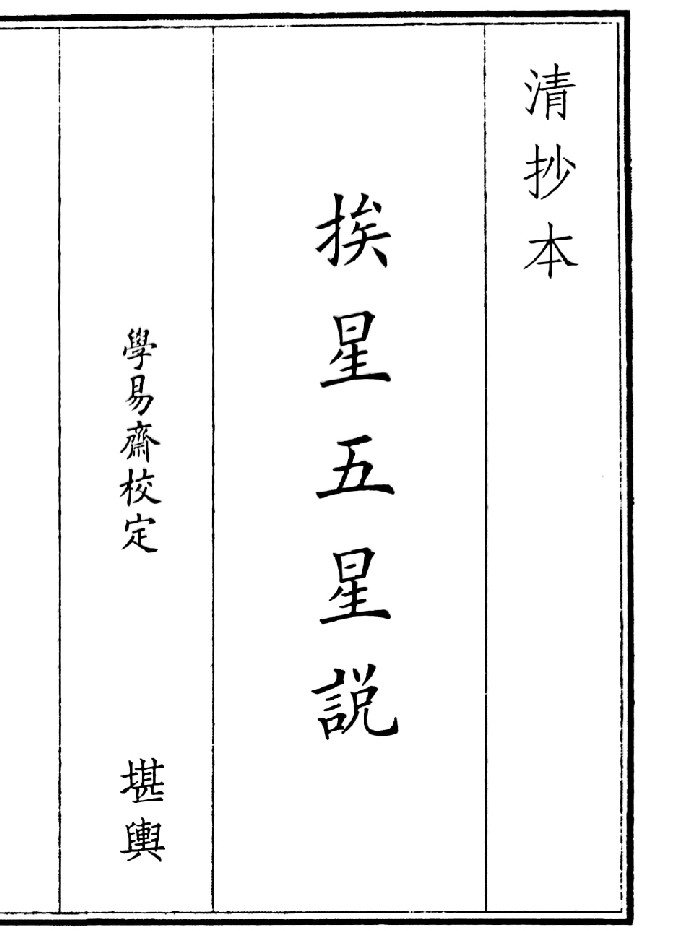 清抄本
挨星五星説
學易齋校定
堪輿